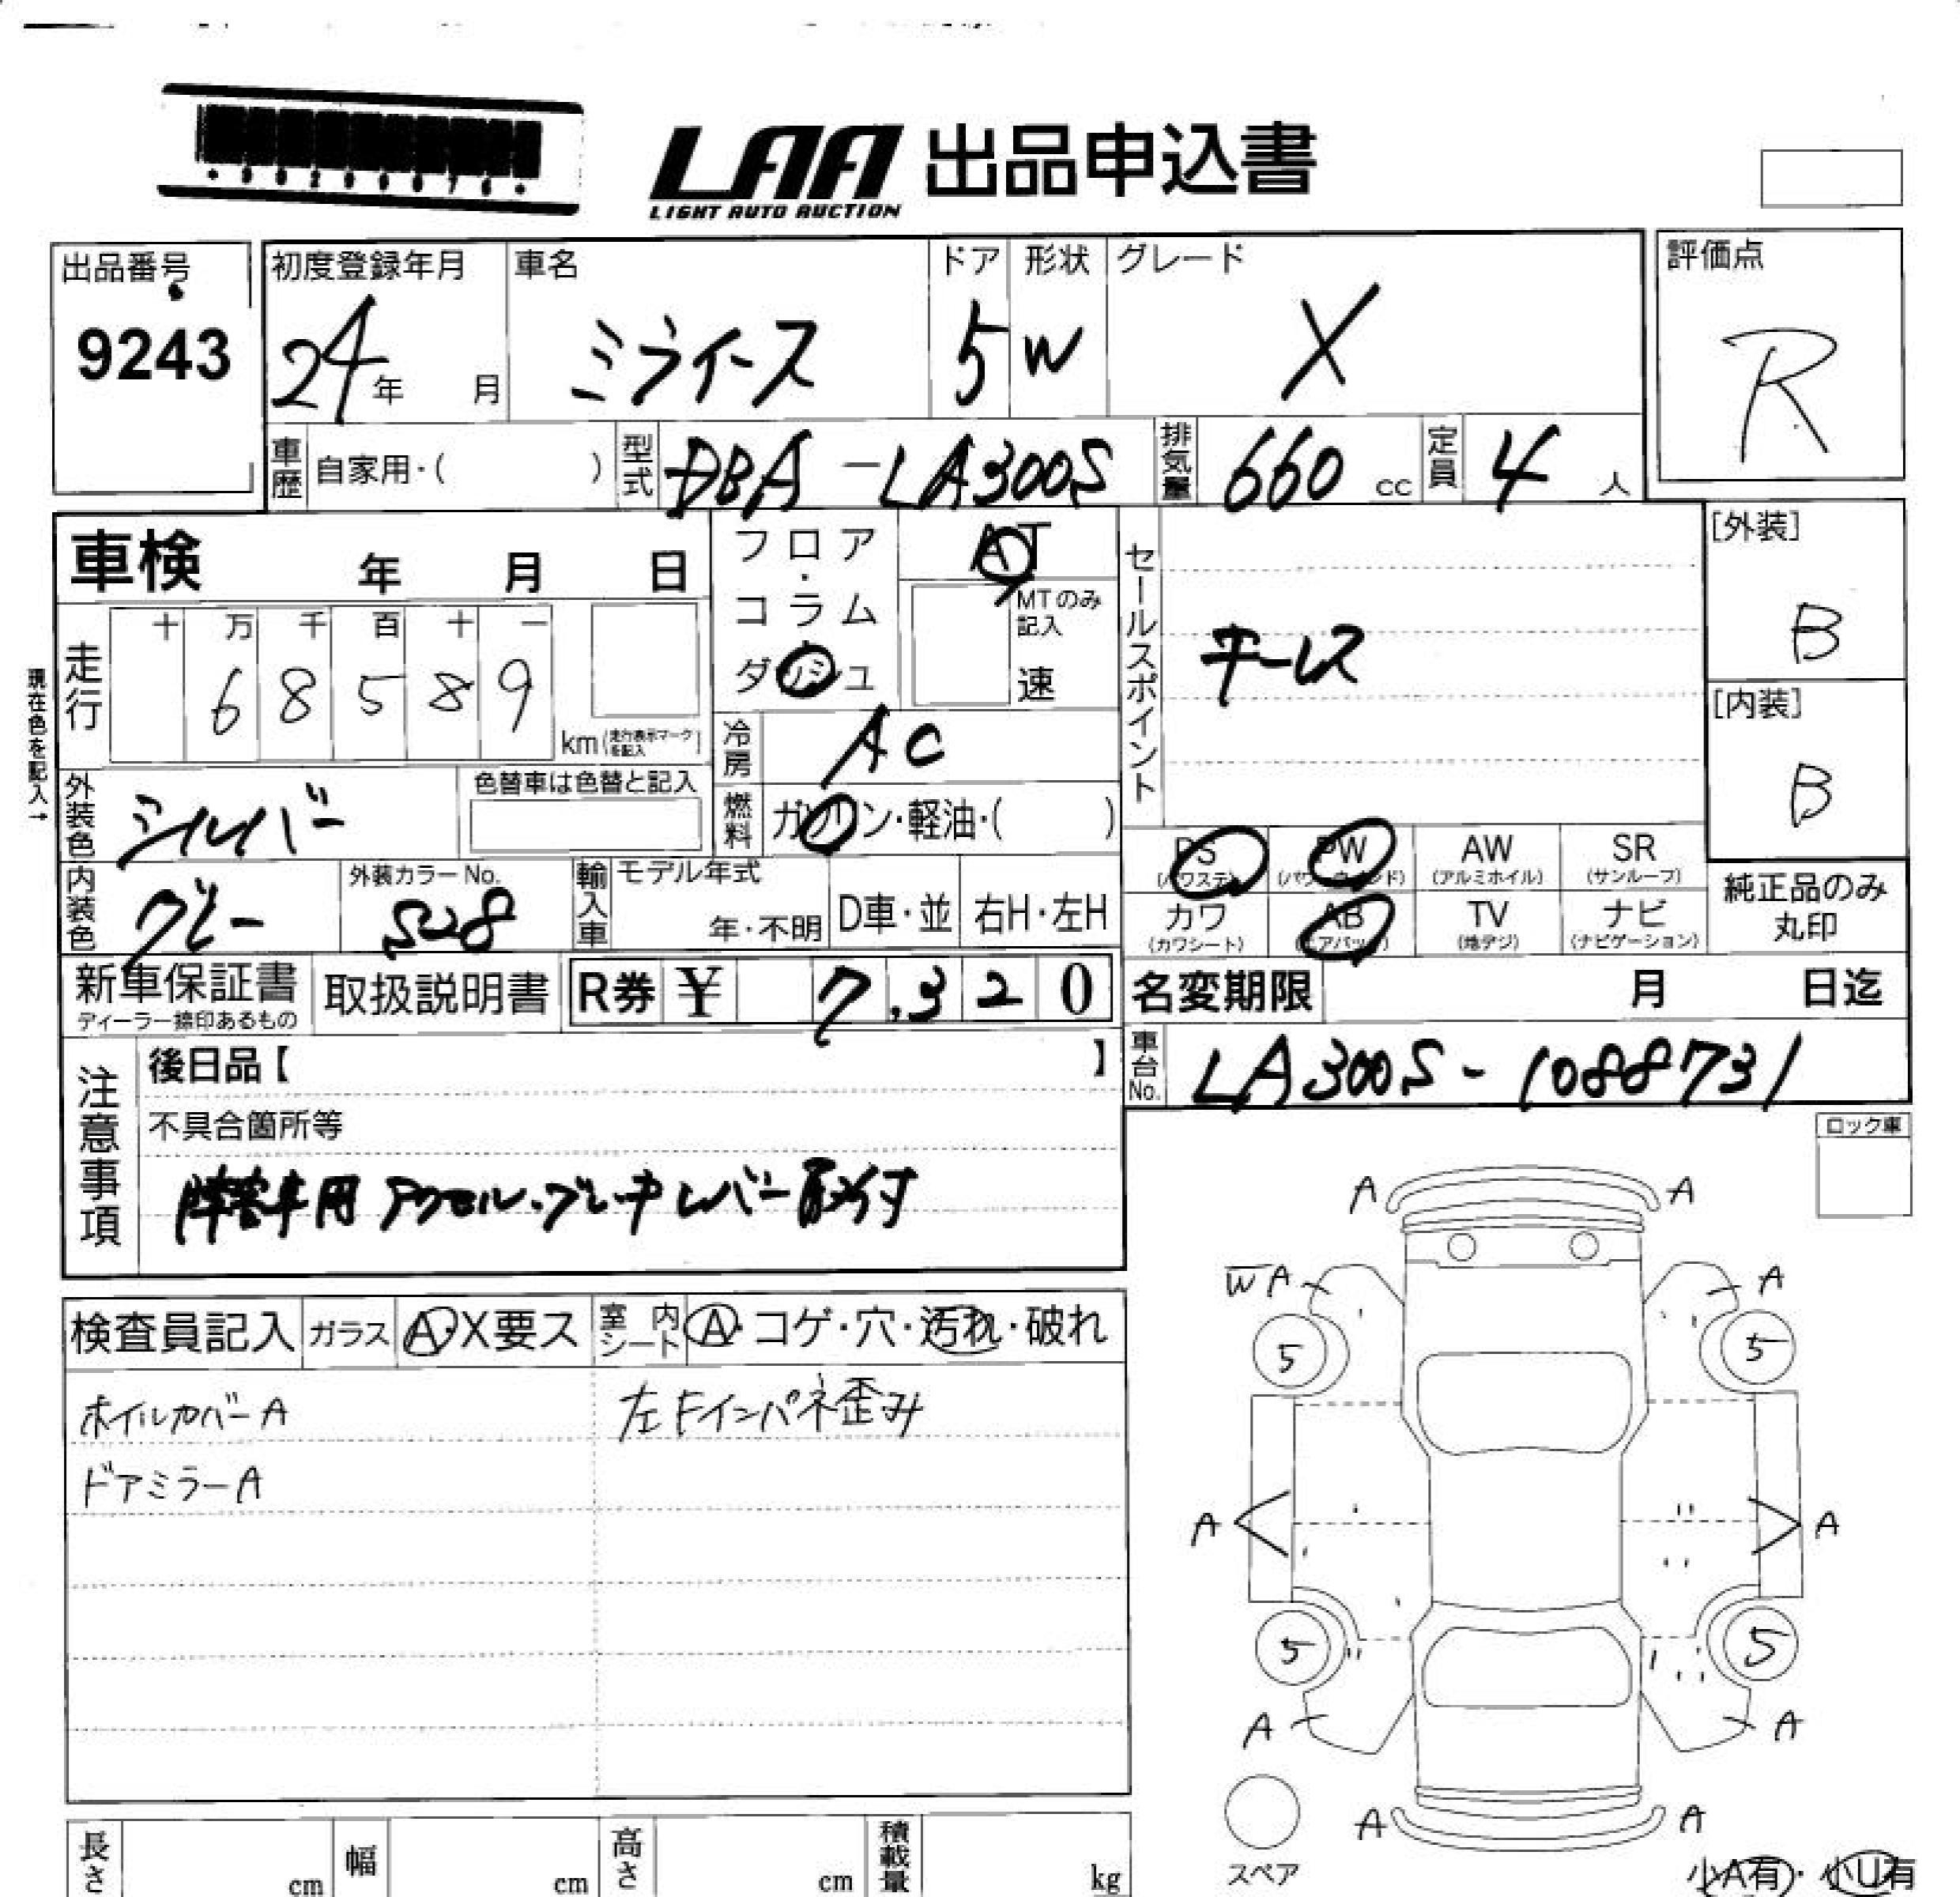 LAA 出品申込書
LIGHT AUTO AUCTION
出品番号
9243
初度登録年月
24年 月
車名
ミライース
ドア
5
形状
W
グレード
X
評価点
R
車歴 自家用・( )
型式 DBA-LA300S
排気量 660 cc
定員 4 人
車検 年 月 日
フロア・コラム・ダッシュ
AT
MTのみ記入
速
セールスポイント
キーレス
[外装]
B
[内装]
B
現在色を記入→
走行
十 万 千 百 十 一
6 8 5 8 9
km (走行表示マークを記入)
冷房 AC
燃料 ガソリン・軽油・( )
外装色 シルバー
色替車は色替と記入
内装色 グレー
外装カラーNo.
S28
輸入車 モデル年式
年・不明
D車・並
右H・左H
PS (パワステ)
PW (パワーウインド)
AW (アルミホイル)
SR (サンルーフ)
カワ (カワシート)
AB (エアバック)
TV (地デジ)
ナビ (ナビゲーション)
純正品のみ
丸印
新車保証書
ディーラー捺印あるもの
取扱説明書
R券 ¥ 7,320
名変期限 月 日迄
車台No. LA300S-1088731
注意事項
後日品【 】
不具合箇所等
障害車用 アクセル・ブレーキレバー取付
ロック車
検査員記入
ガラス A・X要ス
室内シート A・コゲ・穴・汚れ・破れ
ホイルカバーA
左Fインパネ歪み
ドアミラーA
A A
W A A
5 5
A A
5 5
A A
A A
スペア
長さ cm
幅 cm
高さ cm
積載量 kg
小A有・小U有